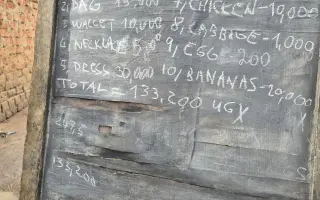 2, BAG 15.000 7, CHICKEN-10,000
3, WALLET 10,000 8, CABBAGE-1,000
4, NECKLACE 9, EGG-200
5, DRESS 30,000 10, BANANAS-20,000
TOTAL = 133,200 UGX
133,200